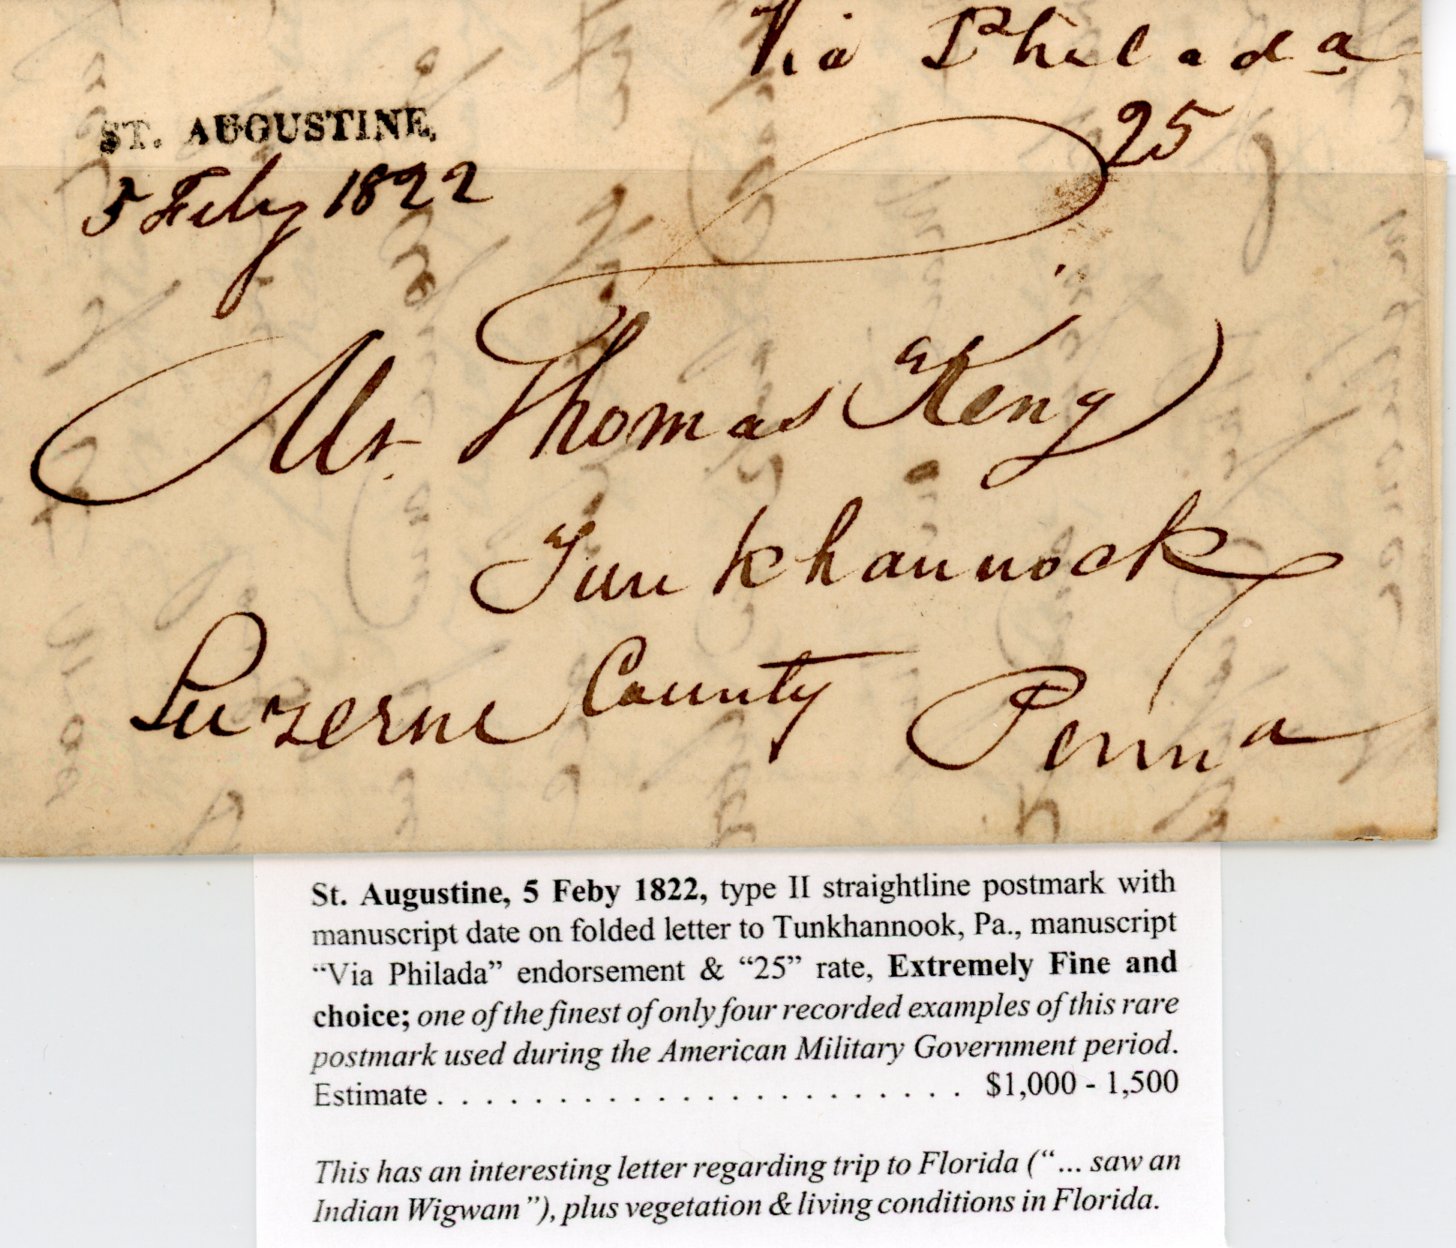 Via Philada
25
ST. AUGUSTINE,
5 Feby 1822
Mr. Thomas King
Tunkhannock
Luzerne County Penna
St. Augustine, 5 Feby 1822, type II straightline postmark with
manuscript date on folded letter to Tunkhannook, Pa., manuscript
“Via Philada” endorsement & “25” rate, Extremely Fine and
choice; one of the finest of only four recorded examples of this rare
postmark used during the American Military Government period.
Estimate . . . . . . . . . . . . . . . . . . . . . . . $1,000 - 1,500
This has an interesting letter regarding trip to Florida (“... saw an
Indian Wigwam”), plus vegetation & living conditions in Florida.